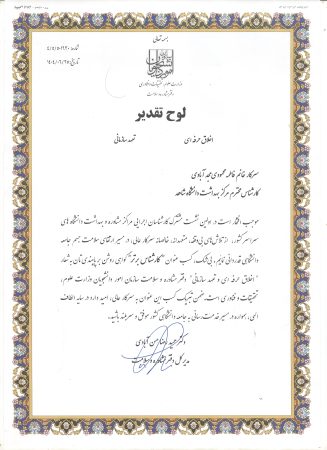 بسمه تعالی
وزارت علوم، تحقیقات و فناوری
دفتر مشاوره و سلامت
لوح تقدیر
اخلاق حرفه ای تعهد سازمانی
سرکار خانم فاطمه محمودی مجد آبادی
کارشناس محترم مرکز بهداشت دانشگاه شاهد
موجب افتخار است در اولین نشست مشترک کارشناسان اجرایی مراکز مشاوره و بهداشت دانشگاه های
سراسر کشور، از تلاش‌های بی‌وقفه، متعهدانه، خالصانه سرکار عالی، در مسیر ارتقای سلامت بهم جامعه
دانشگاهی قدردانی نمایم. بی‌شک، کسب عنوان "کارشناس برتر" گواهی روشن بر پایبندی‌تان به شعار،
"اخلاق حرفه ای و تعهد سازمانی" دفتر مشاوره و سلامت سازمان امور دانشجویان وزارت علوم،
تحقیقات و فناوری است. ضمن تبریک کسب این عنوان به سرکار عالی، امید دارد در سایه الطاف
الهی، همواره در مسیر خدمت رسانی به جامعه دانشگاهی کشور موفق و سربلند باشید.
مدیر کل دفتر مشاوره و سلامت